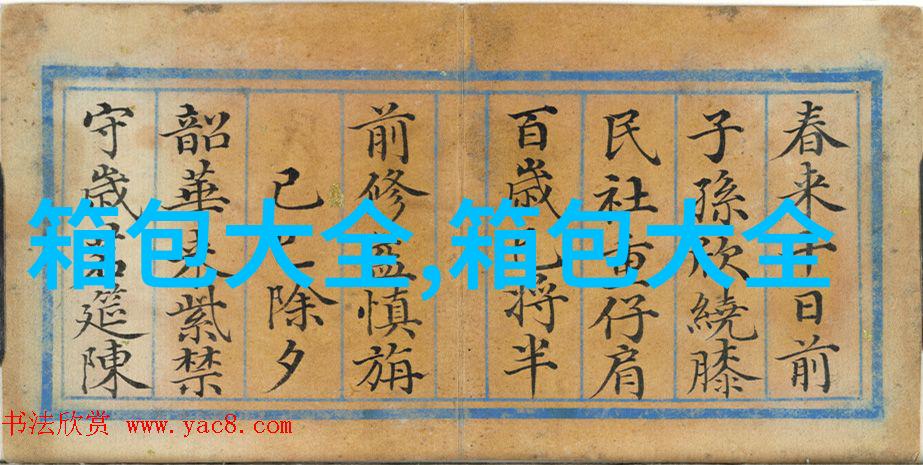 春来日前
子孫欣繞膝
民社重仔肩
百歲已将半
前修益慎旃
己除夕
韶華紫禁
守歲筵陳
箱包大全,箱包大全
书法欣赏 www.yac8.com